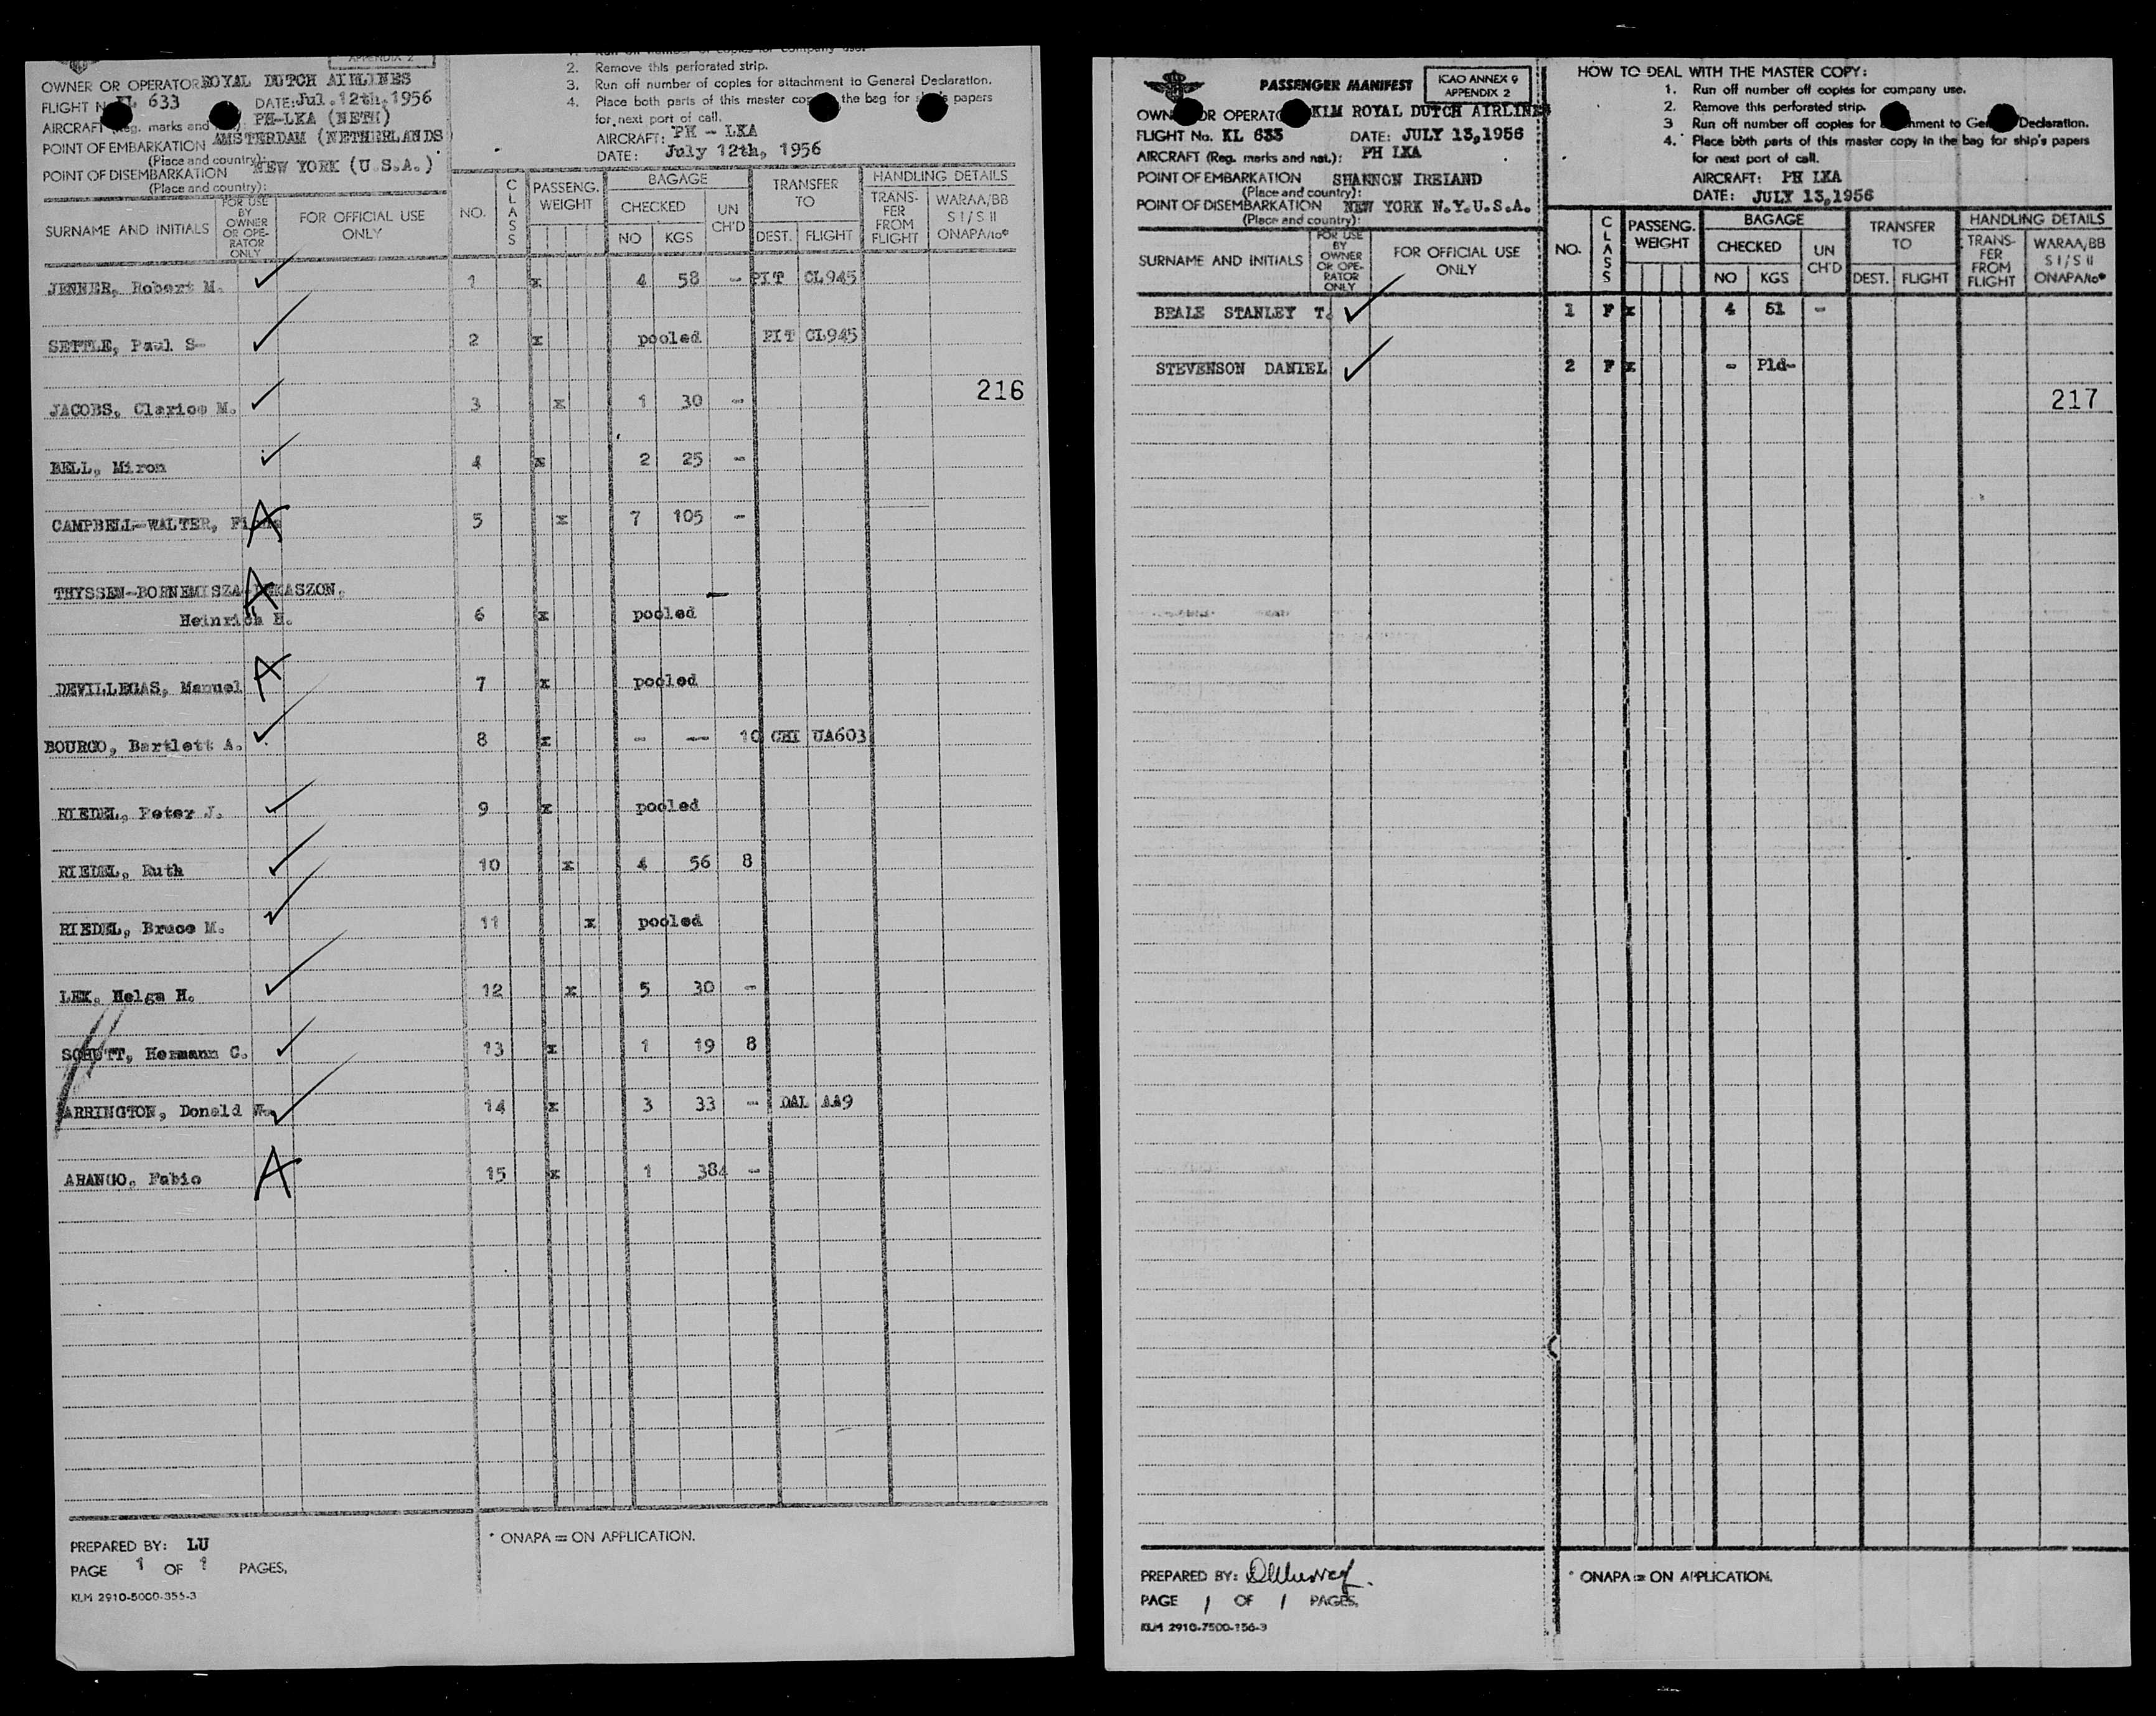 APPENDIX 2
OWNER OR OPERATOR ROYAL DUTCH AIRLINES
FLIGHT N KL 633 DATE: Jul. 12th. 1956
AIRCRAFT (Reg. marks and PH-LKA (NETH)
POINT OF EMBARKATION AMSTERDAM (NETHERLANDS)
(Place and country):
POINT OF DISEMBARKATION NEW YORK (U.S.A.)
(Place and country):
2. Remove this perforated strip.
3. Run off number of copies for attachment to General Declaration.
4. Place both parts of this master copy the bag for ship's papers
for next port of call.
AIRCRAFT: PH - LKA
DATE: July 12th, 1956
SURNAME AND INITIALS FOR USE BY OWNER OR OPE- RATOR ONLY FOR OFFICIAL USE ONLY NO. CLASS PASSENG. WEIGHT BAGAGE CHECKED NO KGS UN CH'D TRANSFER TO DEST. FLIGHT HANDLING DETAILS TRANS- FER FROM FLIGHT WARAA/BB S I / S II ONAPA/to*
JENNER, Robert M. 1 x 4 58 - PIT CL945
SETTLE, Paul S- 2 x pooled PIT CL945
JACOBS, Clarice M. 3 x 1 30 -
216
BELL, Miron 4 x 2 25 -
CAMPBELL-WALTER, A 5 x 7 105 -
THYSSEN-BORNEMISZA A
Heinrich H. 6 x pooled -
DEVILLEGAS, Manuel A 7 x pooled
BOURGO, Bartlett A. 8 x - -- 10 CHI UA603
RIEDEL, Peter J. 9 x pooled
RIEDEL, Ruth 10 x 4 56 8
RIEDEL, Bruce M. 11 x pooled
LEK, Helga H. 12 x 5 30 -
SCHUTT, Hermann C. 13 x 1 19 8
ARRINGTON, Donald W. 14 x 3 33 - DAL AA9
ARANGO, Fabio A 15 x 1 384 -
PREPARED BY: LU
PAGE 1 OF 1 PAGES.
KLM 2910-5000-355-3
* ONAPA = ON APPLICATION.
PASSENGER MANIFEST ICAO ANNEX 9 APPENDIX 2
OWN OR OPERATO KLM ROYAL DUTCH AIRLINES
FLIGHT No. KL 633 DATE: JULY 13,1956
AIRCRAFT (Reg. marks and nat.): PH LKA
POINT OF EMBARKATION SHANNON IRELAND
(Place and country):
POINT OF DISEMBARKATION NEW YORK N.Y.U.S.A.
(Place and country):
HOW TO DEAL WITH THE MASTER COPY:
1. Run off number off copies for company use.
2. Remove this perforated strip.
3 Run off number off copies for hment to Gen Declaration.
4. Place both parts of this master copy in the bag for ship's papers
for next port of call.
AIRCRAFT: PH LKA
DATE: JULY 13,1956
SURNAME AND INITIALS FOR USE BY OWNER OR OPE- RATOR ONLY FOR OFFICIAL USE ONLY NO. CLASS PASSENG. WEIGHT BAGAGE CHECKED NO KGS UN CH'D TRANSFER TO DEST. FLIGHT HANDLING DETAILS TRANS- FER FROM FLIGHT WARAA/BB S I / S II ONAPA/to*
BEALE STANLEY T. 1 F x 4 51 -
STEVENSON DANIEL 2 F x - Pld-
217
PREPARED BY:
PAGE 1 OF 1 PAGES.
KLM 2910-7500-156-3
* ONAPA = ON APPLICATION.